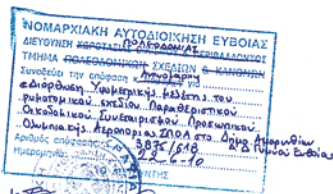 ΝΟΜΑΡΧΙΑΚΗ ΑΥΤΟΔΙΟΙΚΗΣΗ ΕΥΒΟΙΑΣ
ΠΟΛΕΟΔΟΜΙΑΣ
ΔΙΕΥΘΥΝΣΗ ΧΩΡΟΤΑΞΙΑΣ ΠΕΡΙΒΑΛΛΟΝΤΟΣ
ΤΜΗΜΑ ΠΟΛΕΟΔΟΜΙΚΩΝ ΣΧΕΔΙΩΝ & ΚΑΝΟΝΩΝ
Συνοδεύει την απόφαση για
«Διόρθωση Υψομετρικής μελέτης του
ρυμοτομικού σχεδίου Παραθεριστικού
Οικοδομικού Συνεταιρισμού Προσωπικού
Ολυμπιακής Αεροπορίας ΣΠΟΑ στο Δήμο Αμαρυνθίων
Νομού Ευβοίας
Αριθμός απόφασης: 3875/618
Ημερομηνία 22-6-10